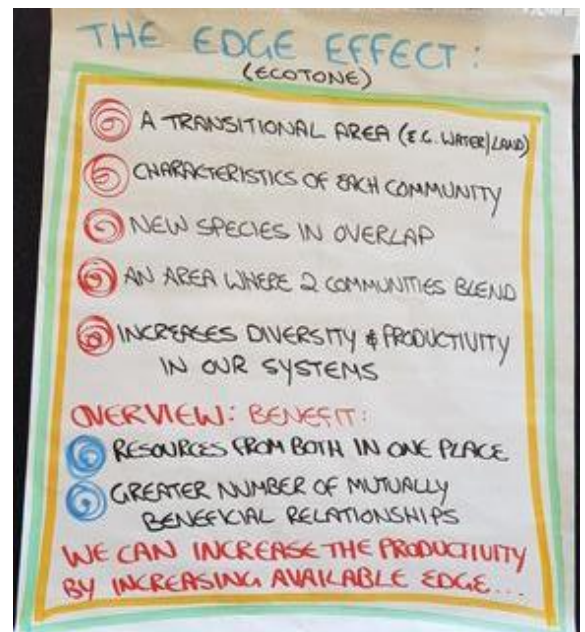 THE EDGE EFFECT:
(ECOTONE)
A TRANSITIONAL AREA (E.G. WATER/LAND)
CHARACTERISTICS OF EACH COMMUNITY
NEW SPECIES IN OVERLAP
AN AREA WHERE 2 COMMUNITIES BLEND
INCREASES DIVERSITY & PRODUCTIVITY
IN OUR SYSTEMS
OVERVIEW: BENEFIT:
RESOURCES FROM BOTH IN ONE PLACE
GREATER NUMBER OF MUTUALLY
BENEFICIAL RELATIONSHIPS
WE CAN INCREASE THE PRODUCTIVITY
BY INCREASING AVAILABLE EDGE...